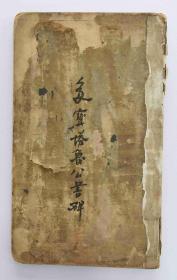 多寶塔魯公書碑